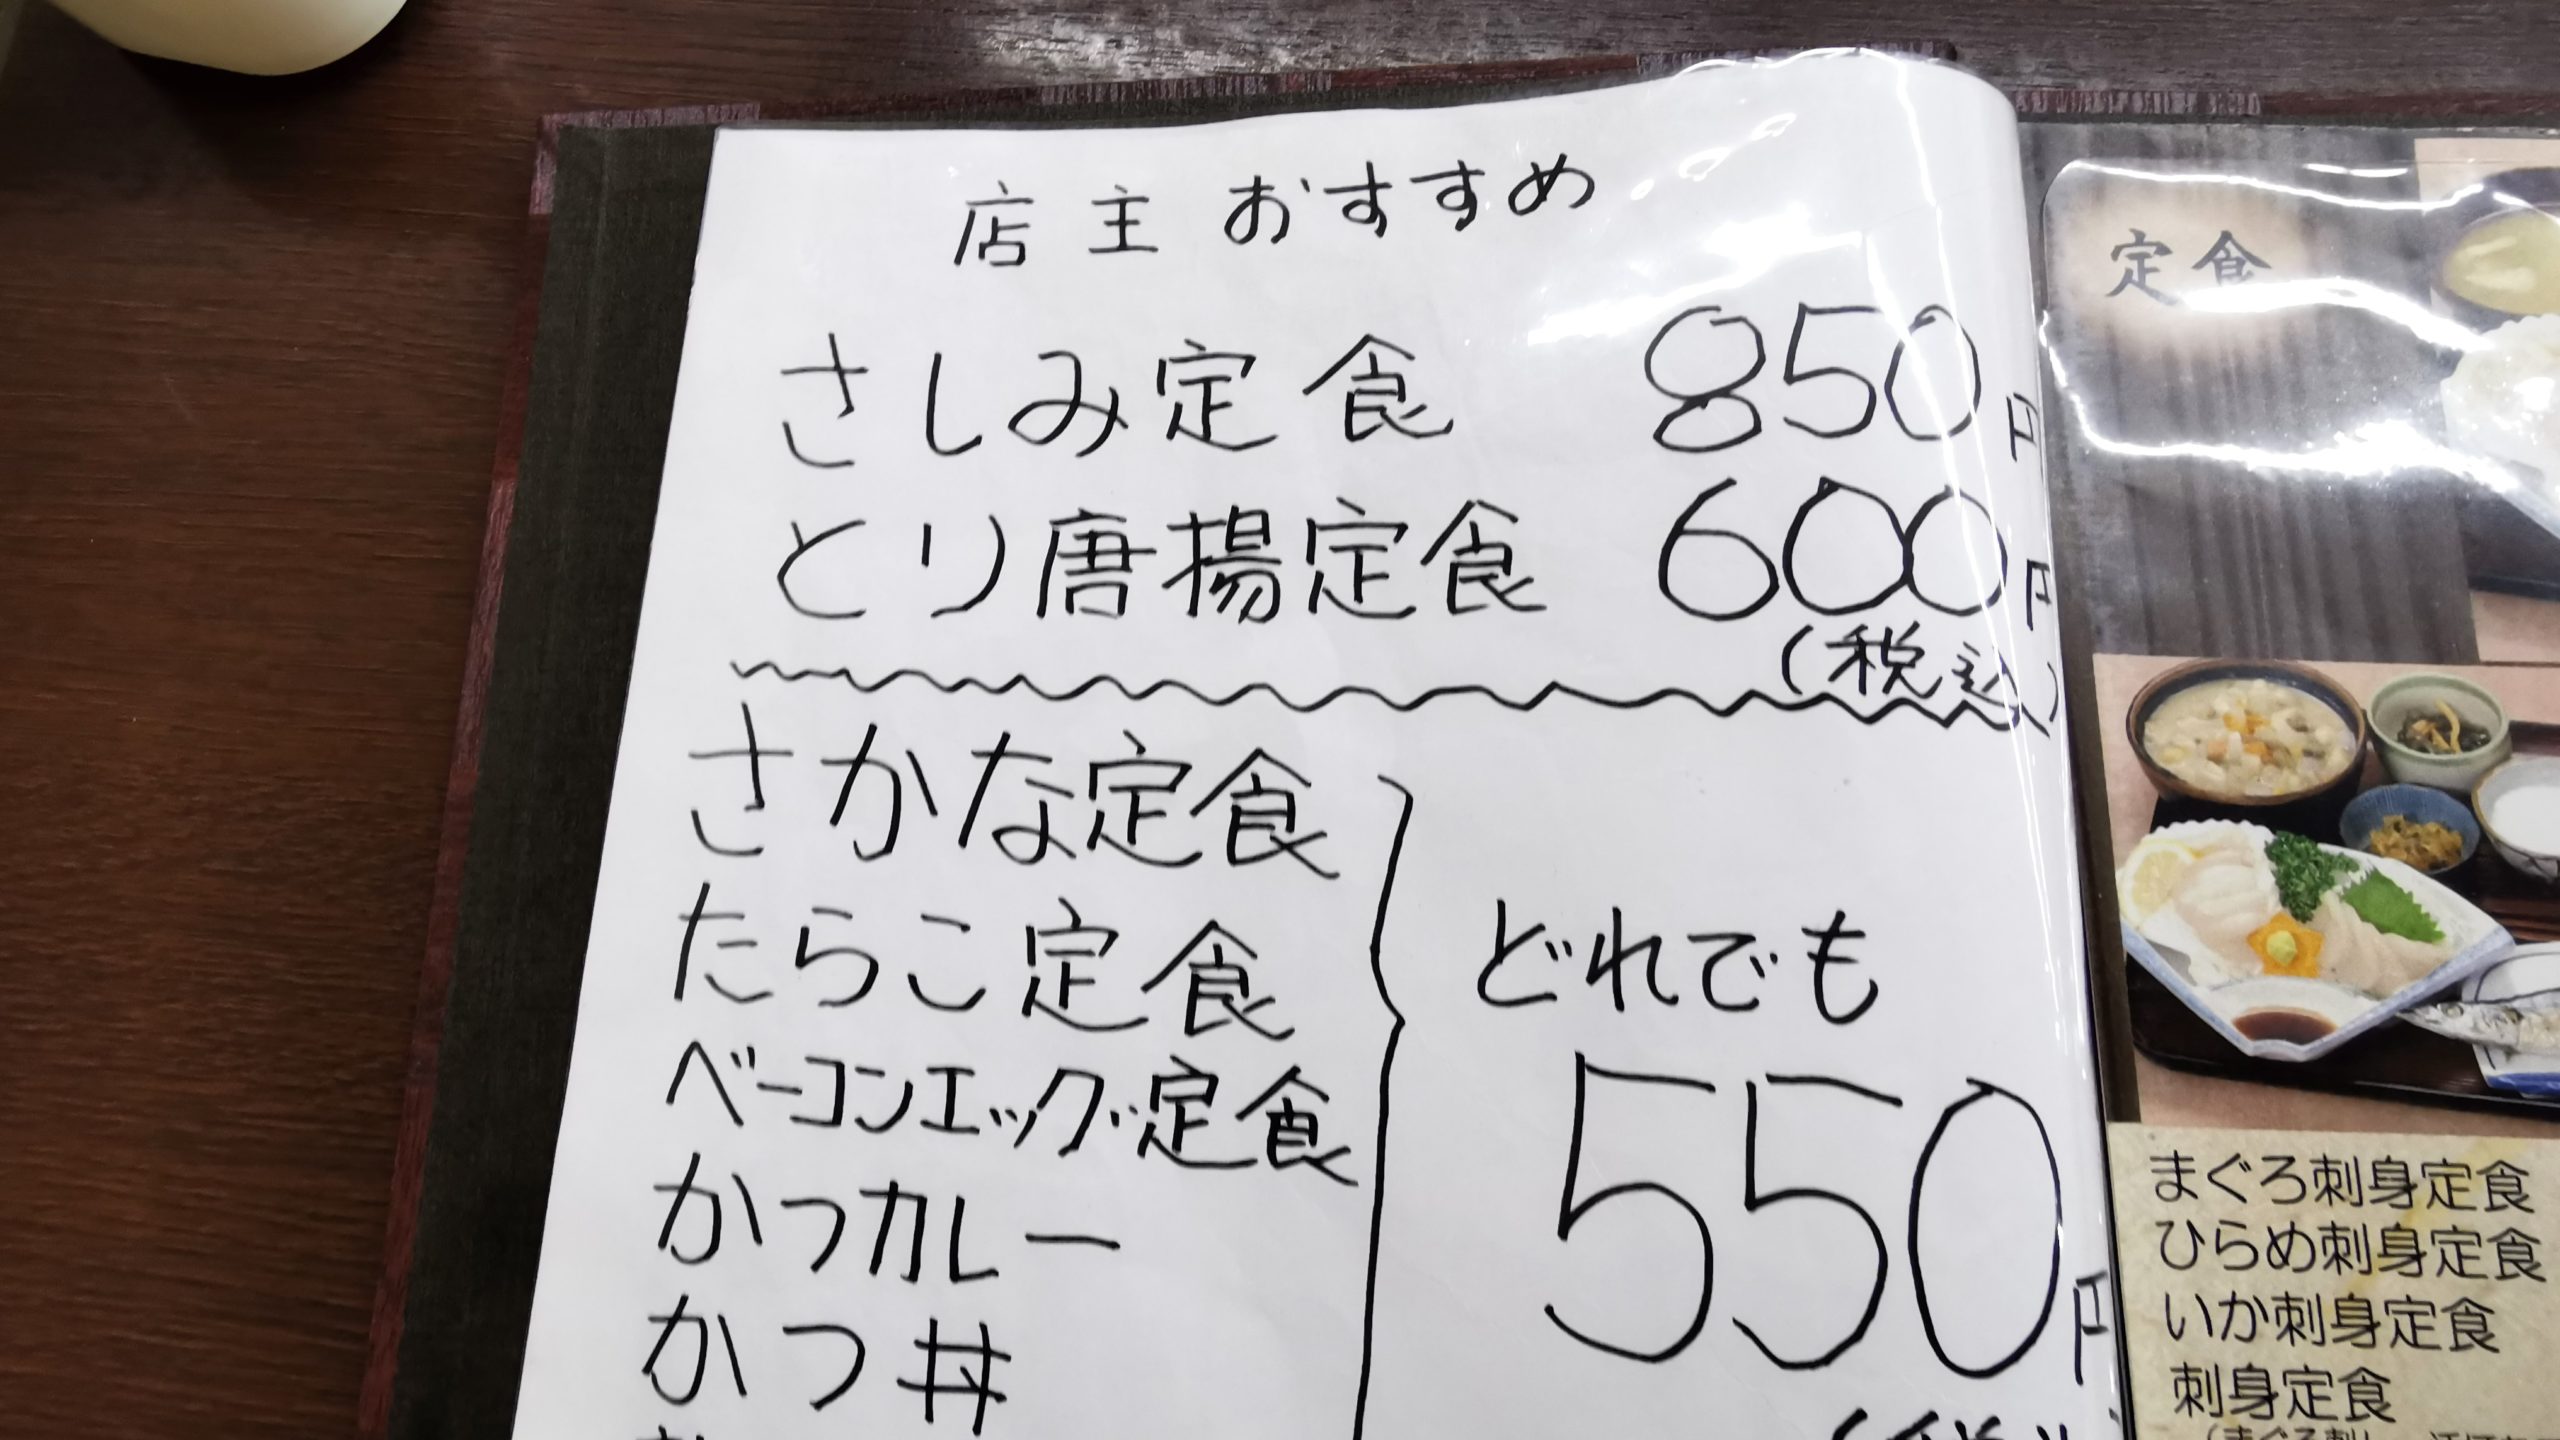 店主おすすめ
さしみ定食 850円
とり唐揚定食 600円
(税込)
さかな定食
たらこ定食
ベーコンエッグ定食
かつカレー
かつ丼
どれでも
550円
定食
まぐろ刺身定食
ひらめ刺身定食
いか刺身定食
刺身定食